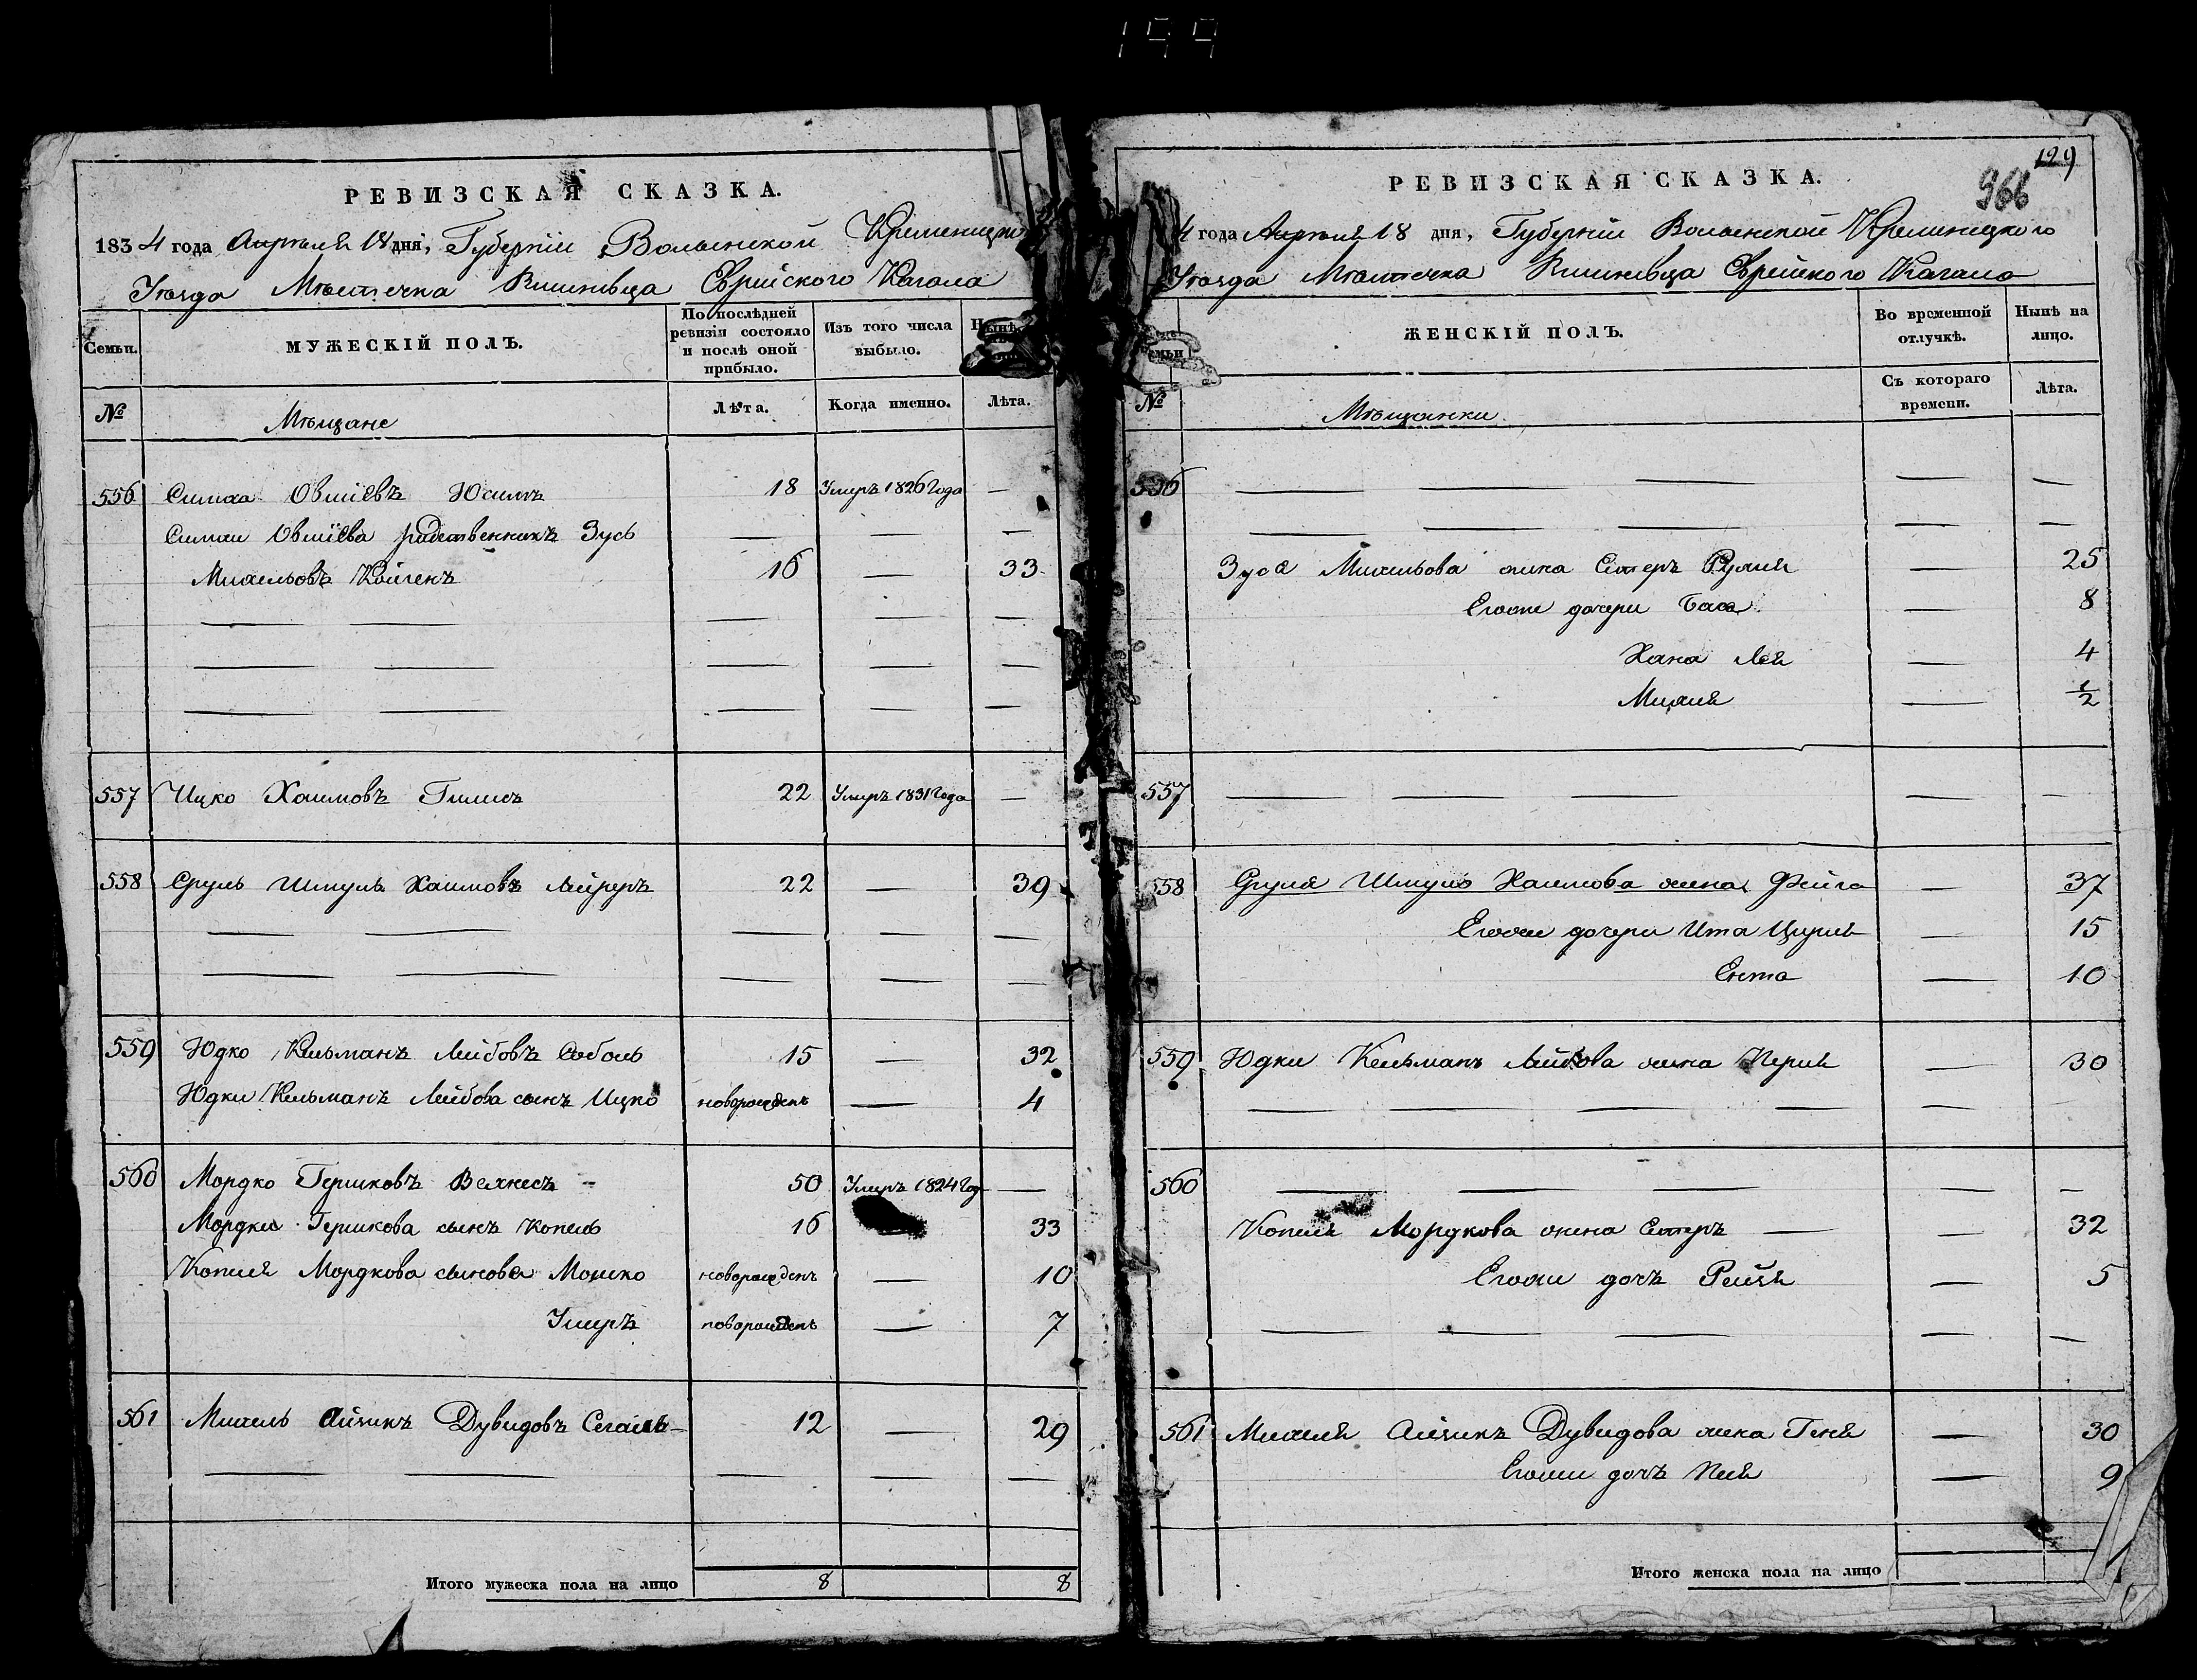 199
РЕВИЗСКАЯ СКАЗКА.
1834 года Апрѣля 18 дня, Губерніи Волынской Кременецкого
Уѣзда Мѣстечка Вишнівца Еврейского Кагала
Семьи. МУЖЕСКІЙ ПОЛЪ. По послѣдней ревизіи состояло и послѣ оной прибыло. Изъ того числа выбыло. Нынѣ
№ Мѣщане Лѣта. Когда именно. Лѣта.
556 Симха Овшіевъ 18 Умеръ 1826 года —
Симхи Овшіева родственникъ Зусь — — —
Михельовъ Койченъ 16 — 33
— — — — —
— — — — —
— — — — —
557 Ицко Хаимовъ 22 Умеръ 1831 года —
558 Сруль Шмуль Хаимовъ Лейреръ 22 — 39
— — — — —
— — — — —
559 Юдко Кельманъ Лейбовъ Соболь 15 — 32
Юдки Кельманъ Лейбова сынъ Ицко новорожденъ — 4
560 Мордко Гершковъ 50 Умеръ 1824 год —
Мордки Гершкова сынъ Копель 16 — 33
Копеля Мордкова сыновья Мошко новорожденъ — 10
новорожденъ — 7
561 Михель Айзикъ Дувидовъ Сегаль 12 — 29
— — — — —
Итого мужеска пола на лицо 8 8
129
966
РЕВИЗСКАЯ СКАЗКА.
4 года Апрѣля 18 дня, Губерніи Волынской Кременецкого
Уѣзда Мѣстечка Вишнівца Еврейского Кагала
Семьи ЖЕНСКІЙ ПОЛЪ. Во временной отлучкѣ. Нынѣ на лицо.
№ Мѣщанки Съ котораго времени. Лѣта.
556 — — — — —
— — — — —
Зуся Михельова жена Естеръ Рухля — 25
Егоже дочери Бася — 8
Хана Лея — 4
— 1/2
557 — — — — —
558 Сруля Шмуль Хаимова жена Фейга — 37
Егоже дочери Ита Цируля — 15
Ента — 10
559 Юдки Кельманъ Лейбова жена Перля — 30
— — — — —
560 — — — — —
Копеля Мордкова жена Естеръ — — 32
Егоже дочь Рейзя — 5
— — — — —
561 Михеля Айзикъ Дувидова жена Геня — 30
Егоже дочь — 9
Итого женска пола на лицо